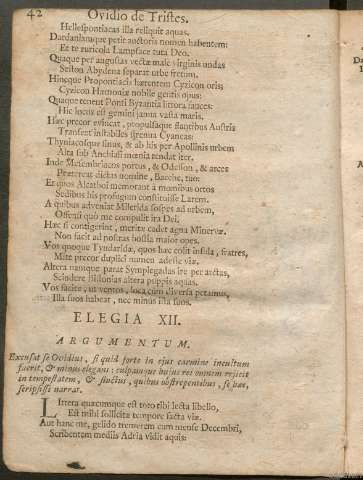 42 Ovidio de Tristes.
Hellespontiacas illa reliquit aquas.
Dardaniamque petit auctoris nomen habentem:
Et te ruricola Lampsace tuta Deo.
Quaque per angustas vectæ male virginis undas
Seston Abydena separat urbe fretum.
Hincque Propontiacis hærentem Cyzicon oris;
Cyzicon Hæmoniæ nobile gentis opus:
Quaque tenent Ponti Byzantia littora fauces:
Hic locus est gemini janua vasta maris.
Hæc precor evincat, propulsaque flantibus Austris
Transeat instabiles strenua Cyaneas:
Thyniacosque sinus, & ab his per Apollinis urbem
Alta sub Anchiali mœnia tendat iter.
Inde Mesembriacos portus, & Odesson, & arces
Prætereat dictas nomine, Bacche, tuo:
Et quos Alcathoi memorant a mœnibus ortos
Sedibus his profugum constituisse Larem.
A quibus adveniat Miletida sospes ad urbem,
Offensi quo me compulit ira Dei.
Hæc si contigerint, meritæ cadet agna Minervæ.
Non facit ad nostras hostia maior opes.
Vos quoque Tyndaridæ, quos hæc colit insula, fratres,
Mite precor duplici numen adesse viæ.
Altera namque parat Symplegadas ire per arctas,
Scindere Bistonias altera puppis aquas.
Vos facite, ut ventos, loca cum diversa petamus,
Illa suos habeat, nec minus illa suos.
ELEGIA XII.
ARGUMENTUM.
Excusat se Ovidius, si quid forte in ejus carmine incultum
fuerit, & minus elegans: culpamque hujus rei omnem rejicit
in tempestatem, & fluctus, quibus obstrepentibus, se hæc
scripsisse narrat.
Littera quæcumque est toto tibi lecta libello,
Est mihi sollicito tempore facta viæ.
Aut hanc me, gelido tremerem cum mense Decembri,
Scribentem mediis Adria vidit aquis: